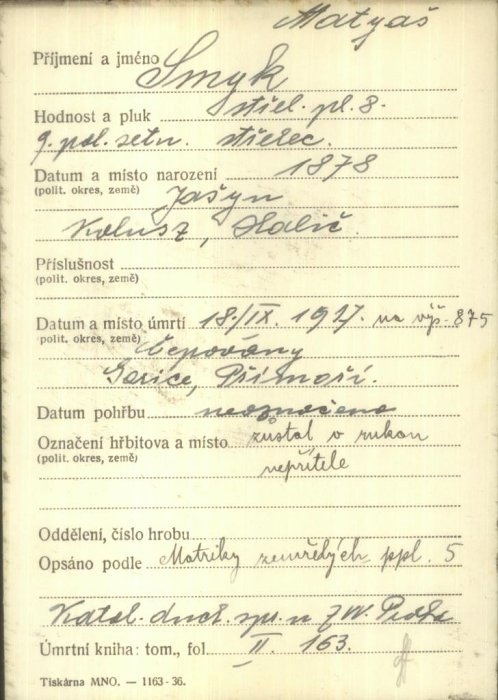 Matyáš
Příjmení a jméno Smyk
Hodnost a pluk střel. pl. 8.
9. pol. setn. střelec.
Datum a místo narození 1878
(polit. okres, země)
Jasyn
Kalusz, Halič.
Příslušnost
(polit. okres, země)
Datum a místo úmrtí 18./IX. 1917. na výš. 875
(polit. okres, země)
Čepovány
Gorice, Přímoří.
Datum pohřbu neoznačeno
Označení hřbitova a místo zůstal v rukou
(polit. okres, země)
nepřítele
Oddělení, číslo hrobu
Opsáno podle Matriky zemřelých ppl. 5
Katol. duch. spr. n
Úmrtní kniha: tom., fol. II. 163.
Tiskárna MNO. — 1163-36.